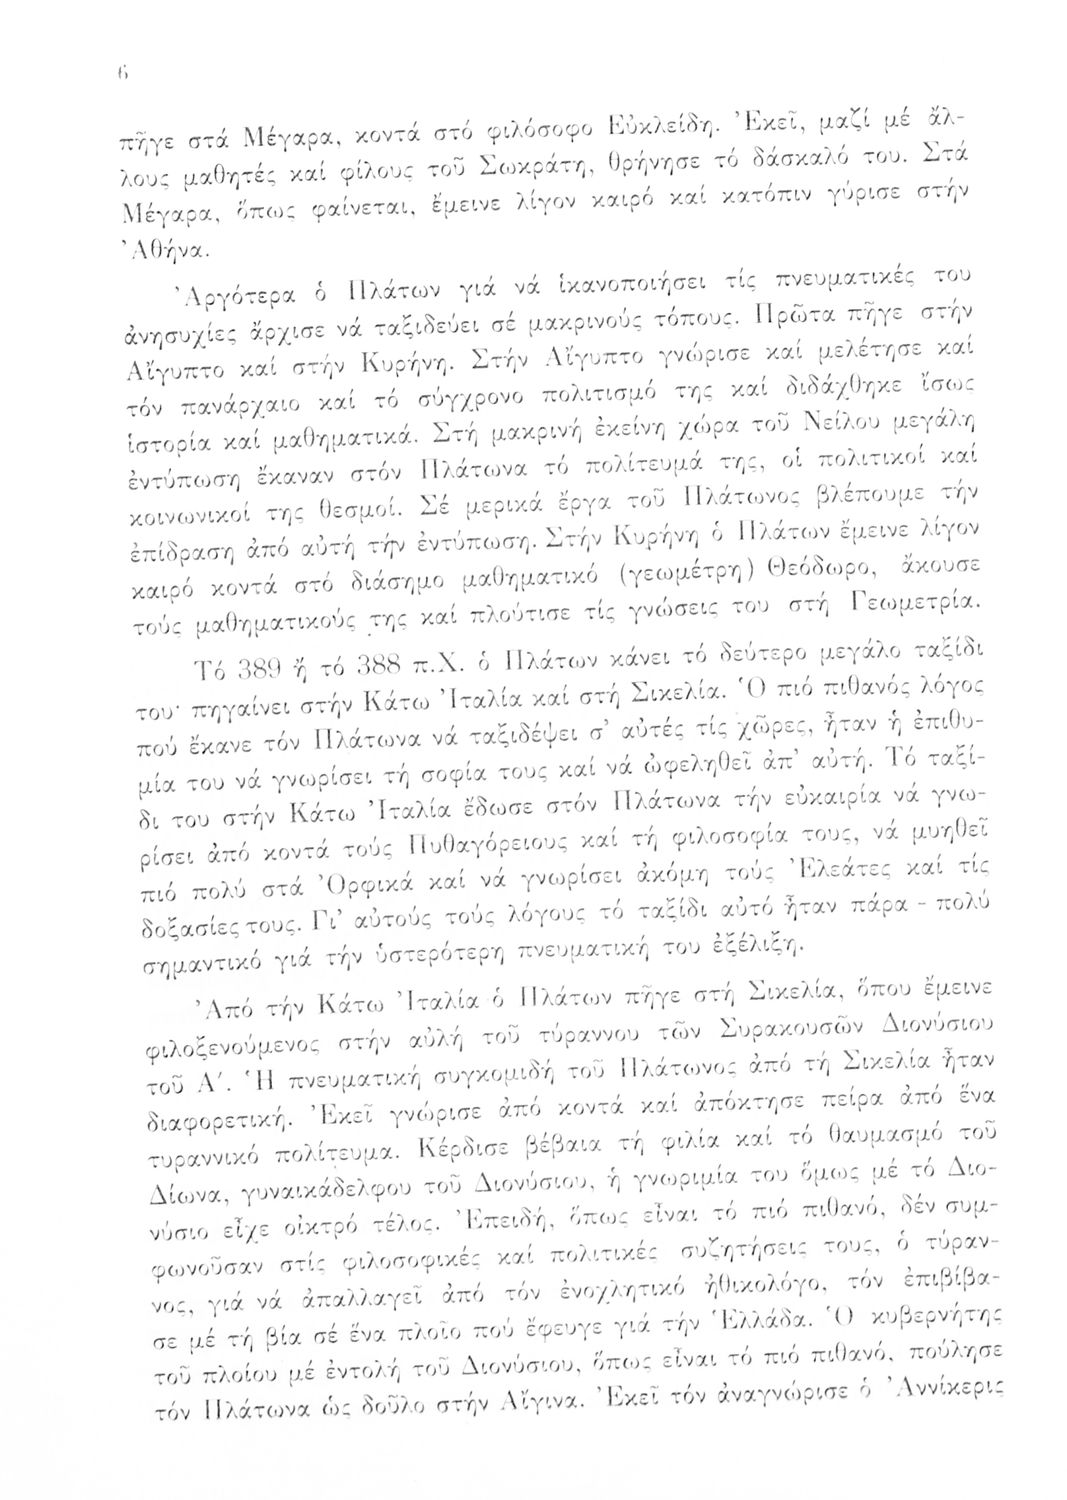 6
πῆγε στά Μέγαρα, κοντά στό φιλόσοφο Εὐκλείδη. Ἐκεῖ, μαζί μέ ἄλ-
λους μαθητές καί φίλους τοῦ Σωκράτη, θρήνησε τό δάσκαλό του. Στά
Μέγαρα, ὅπως φαίνεται, ἔμεινε λίγον καιρό καί κατόπιν γύρισε στήν
Ἀθήνα.
Ἀργότερα ὁ Πλάτων γιά νά ἱκανοποιήσει τίς πνευματικές του
ἀνησυχίες ἄρχισε νά ταξιδεύει σέ μακρινούς τόπους. Πρῶτα πῆγε στήν
Αἴγυπτο καί στήν Κυρήνη. Στήν Αἴγυπτο γνώρισε καί μελέτησε καί
τόν πανάρχαιο καί τό σύγχρονο πολιτισμό της καί διδάχθηκε ἴσως
ἱστορία καί μαθηματικά. Στή μακρινή ἐκείνη χώρα τοῦ Νείλου μεγάλη
ἐντύπωση ἔκαναν στόν Πλάτωνα τό πολίτευμά της, οἱ πολιτικοί καί
κοινωνικοί της θεσμοί. Σέ μερικά ἔργα τοῦ Πλάτωνος βλέπουμε τήν
ἐπίδραση ἀπό αὐτή τήν ἐντύπωση. Στήν Κυρήνη ὁ Πλάτων ἔμεινε λίγον
καιρό κοντά στό διάσημο μαθηματικό (γεωμέτρη) Θεόδωρο, ἄκουσε
τούς μαθηματικούς της καί πλούτισε τίς γνώσεις του στή Γεωμετρία.
Τό 389 ἤ τό 388 π.Χ. ὁ Πλάτων κάνει τό δεύτερο μεγάλο ταξίδι
του· πηγαίνει στήν Κάτω Ἰταλία καί στή Σικελία. Ὁ πιό πιθανός λόγος
πού ἔκανε τόν Πλάτωνα νά ταξιδέψει σ' αὐτές τίς χῶρες, ἦταν ἡ ἐπιθυ-
μία του νά γνωρίσει τή σοφία τους καί νά ὠφεληθεῖ ἀπ' αὐτή. Τό ταξί-
δι του στήν Κάτω Ἰταλία ἔδωσε στόν Πλάτωνα τήν εὐκαιρία νά γνω-
ρίσει ἀπό κοντά τούς Πυθαγόρειους καί τή φιλοσοφία τους, νά μυηθεῖ
πιό πολύ στά Ὀρφικά καί νά γνωρίσει ἀκόμη τούς Ἐλεάτες καί τίς
δοξασίες τους. Γι' αὐτούς τούς λόγους τό ταξίδι αὐτό ἦταν πάρα - πολύ
σημαντικό γιά τήν ὑστερότερη πνευματική του ἐξέλιξη.
Ἀπό τήν Κάτω Ἰταλία ὁ Πλάτων πῆγε στή Σικελία, ὅπου ἔμεινε
φιλοξενούμενος στήν αὐλή τοῦ τύραννου τῶν Συρακουσῶν Διονύσιου
τοῦ Α΄. Ἡ πνευματική συγκομιδή τοῦ Πλάτωνος ἀπό τή Σικελία ἦταν
διαφορετική. Ἐκεῖ γνώρισε ἀπό κοντά καί ἀπόκτησε πείρα ἀπό ἕνα
τυραννικό πολίτευμα. Κέρδισε βέβαια τή φιλία καί τό θαυμασμό τοῦ
Δίωνα, γυναικάδελφου τοῦ Διονύσιου, ἡ γνωριμία του ὅμως μέ τό Διο-
νύσιο εἶχε οἰκτρό τέλος. Ἐπειδή, ὅπως εἶναι τό πιό πιθανό, δέν συμ-
φωνοῦσαν στίς φιλοσοφικές καί πολιτικές συζητήσεις τους, ὁ τύραν-
νος, γιά νά ἀπαλλαγεῖ ἀπό τόν ἐνοχλητικό ἠθικολόγο, τόν ἐπιβίβα-
σε μέ τή βία σέ ἕνα πλοῖο πού ἔφευγε γιά τήν Ἑλλάδα. Ὁ κυβερνήτης
τοῦ πλοίου μέ ἐντολή τοῦ Διονύσιου, ὅπως εἶναι τό πιό πιθανό, πούλησε
τόν Πλάτωνα ὡς δοῦλο στήν Αἴγινα. Ἐκεῖ τόν ἀναγνώρισε ὁ Ἀννίκερις